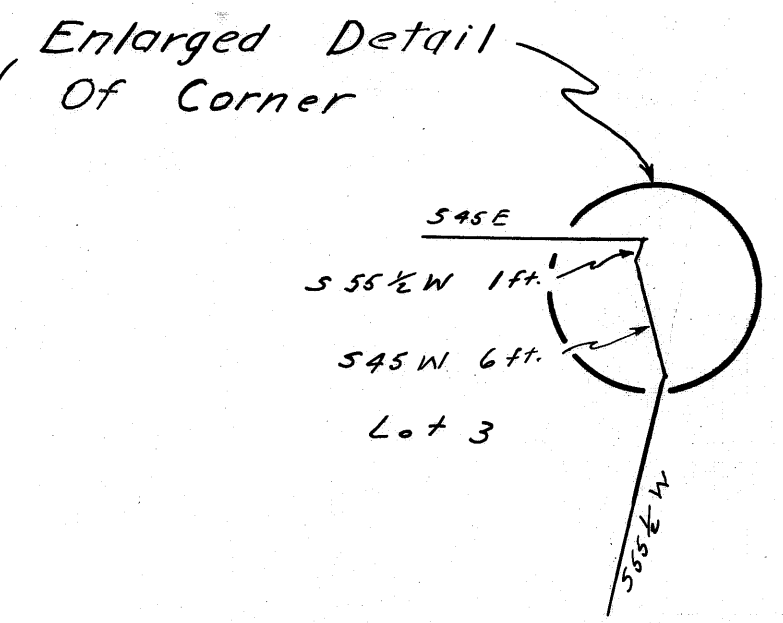 Enlarged Detail
Of Corner
S45E
S 55 ½ W 1 ft.
S45 W 6 ft.
Lot 3
S55 ½ W